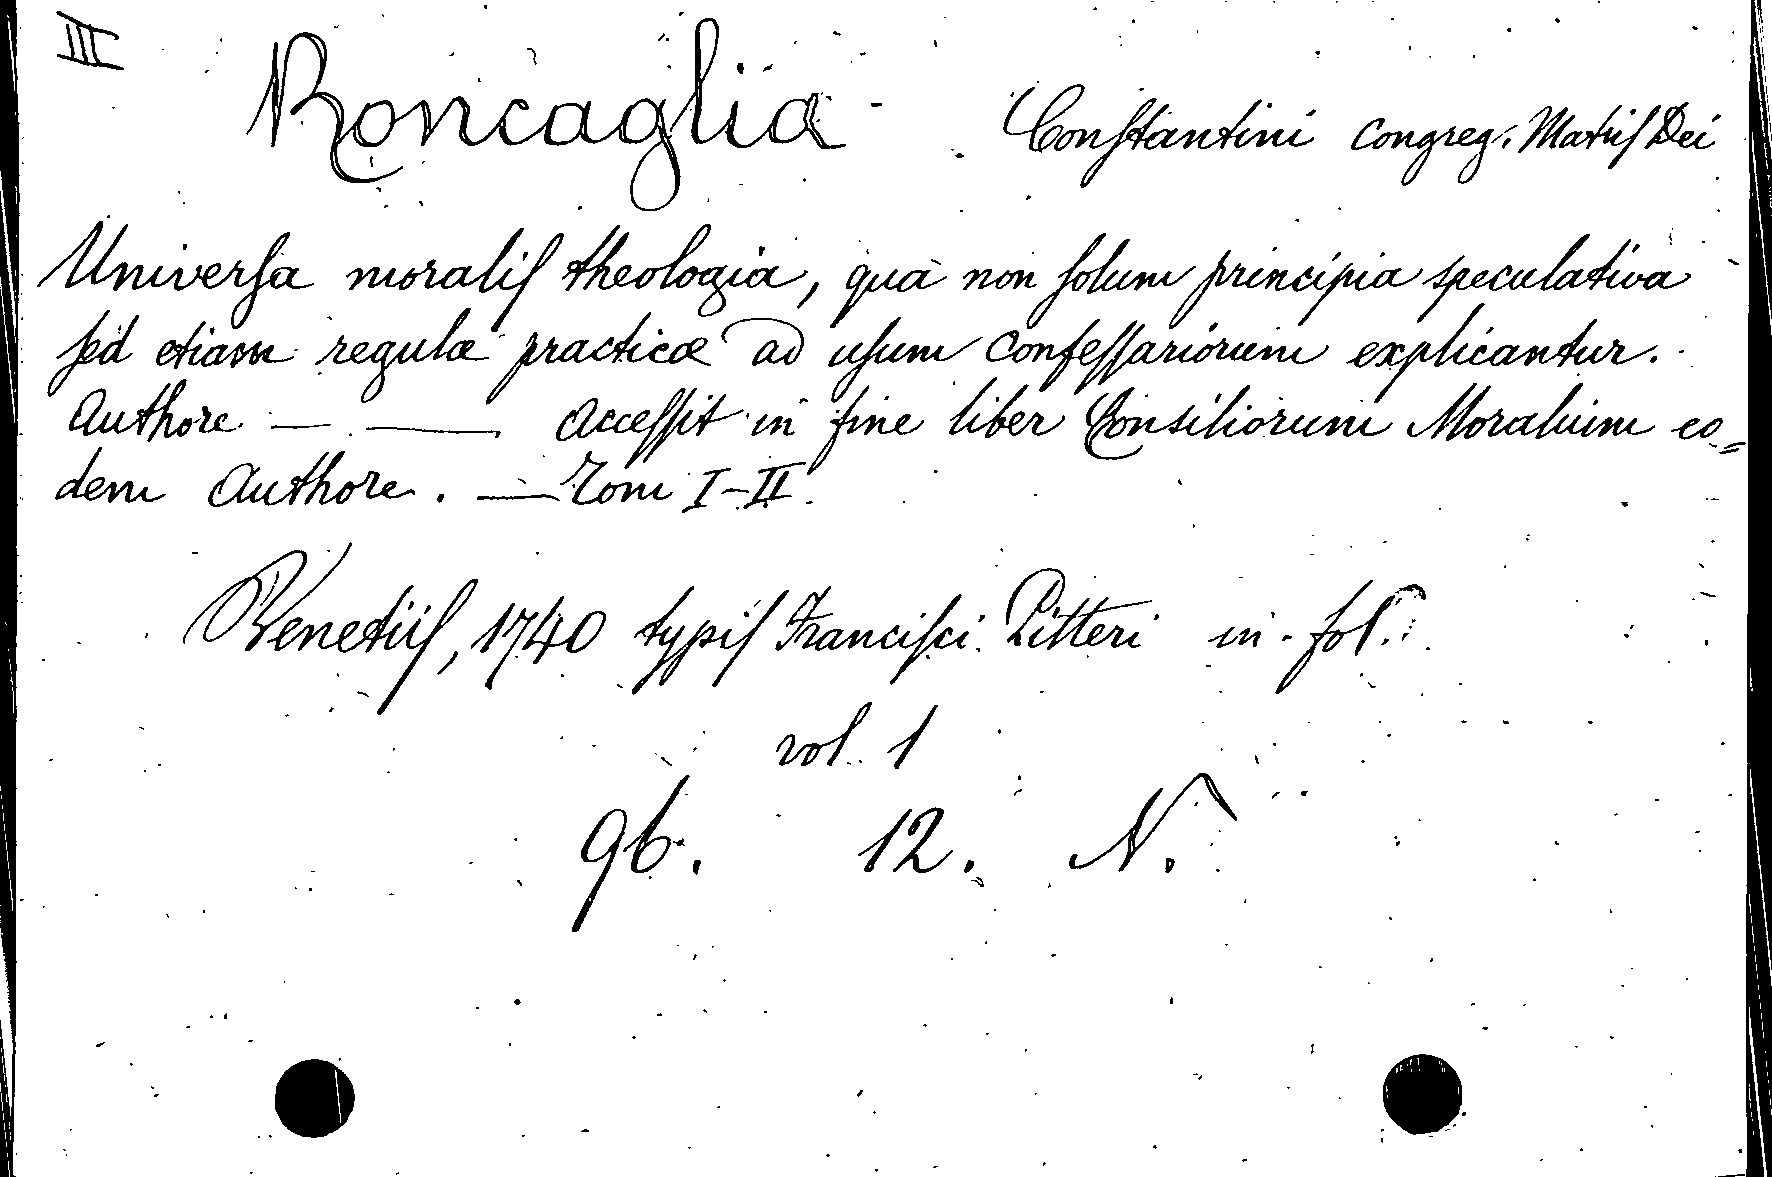 III
Roncaglia Constantini congreg. Matris Dei
Universa moralis theologia, qua non solum principia speculativa
sed etiam regulæ practicæ ad usum confessariorum explicantur.
Authore — — accessit in fine liber Consiliorum Moralium eo=
dem Authore. — Tom I-II.
Venetiis, 1740 typis Francisci Pitteri in-fol.
vol. 1
96. 12. N.